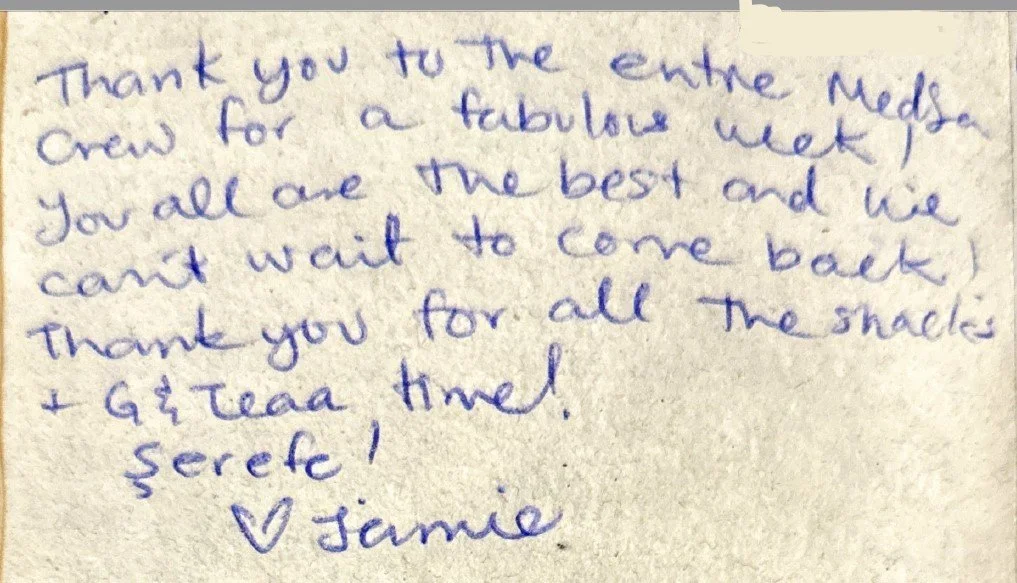 Thank you to the entire Medsea
Crew for a fabulous week!
You all are the best and we
can't wait to come back!
Thank you for all the snacks
+ G & Teaa time!
Şerefe!
♡ Jamie